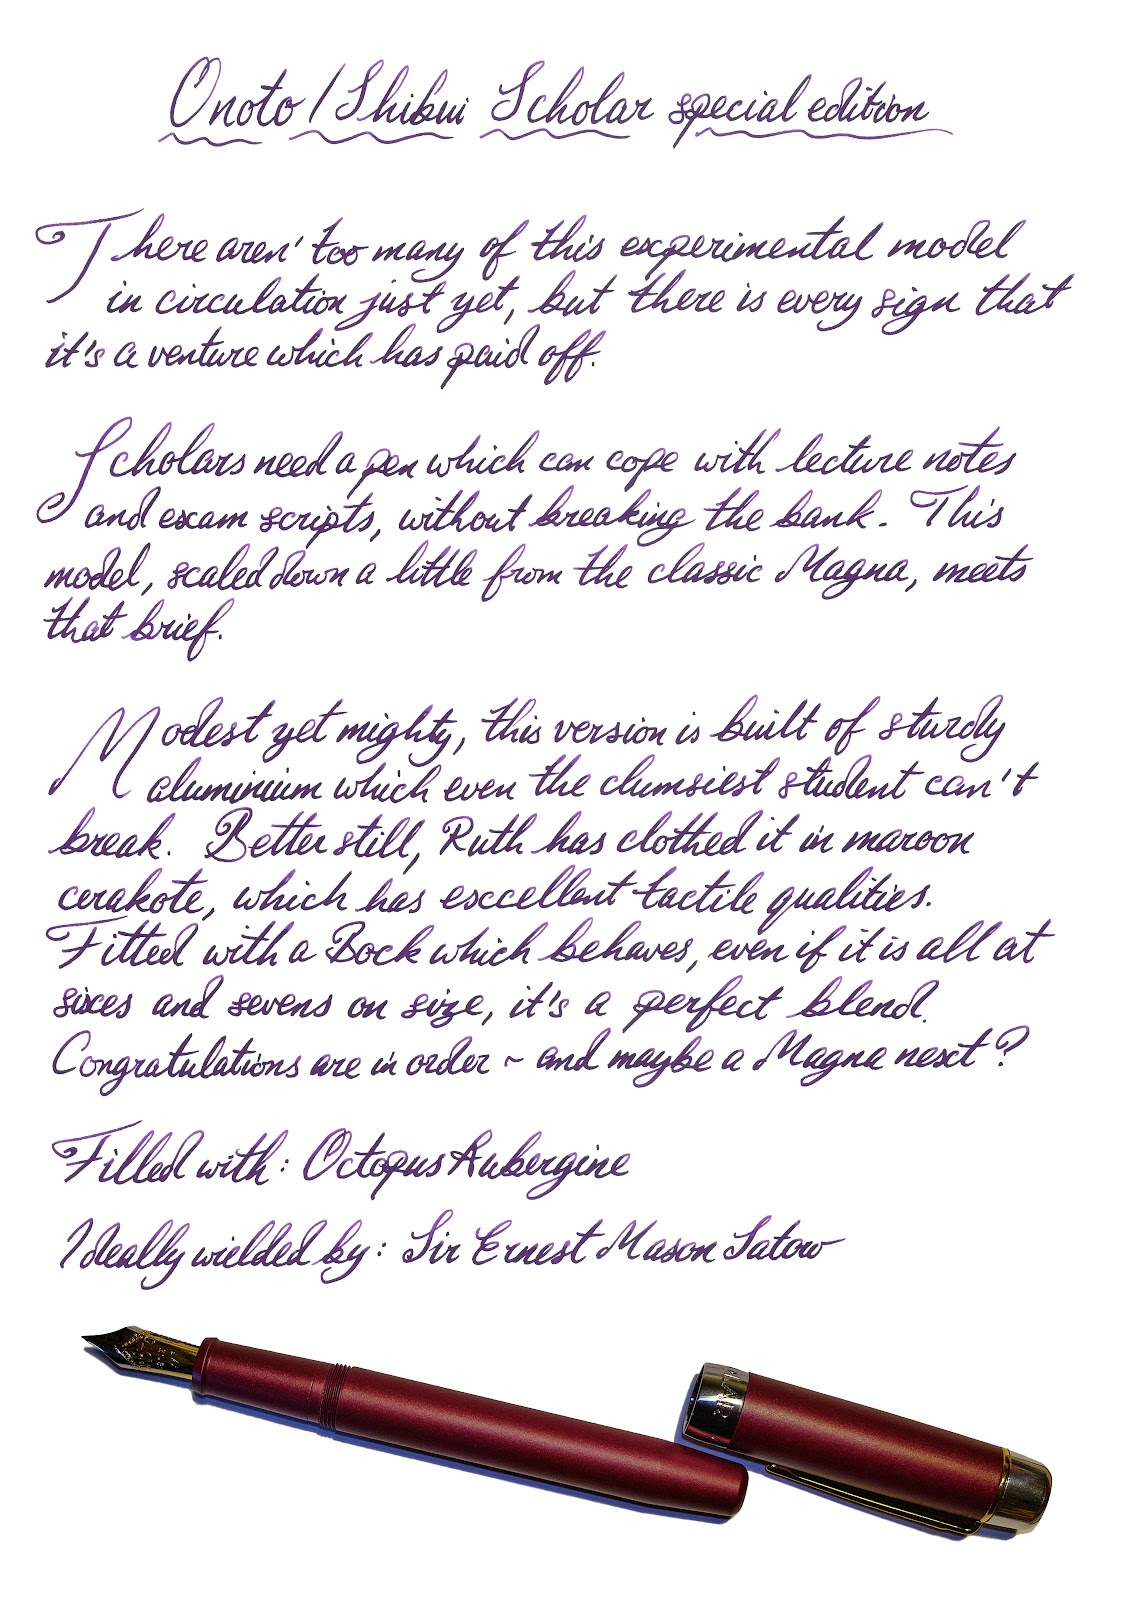 Onoto / Shibui Scholar special edition
There aren' too many of this experimental model
in circulation just yet, but there is every sign that
it's a venture which has paid off.
Scholars need a pen which can cope with lecture notes
and exam scripts, without breaking the bank. This
model, scaled down a little from the classic Magna, meets
that brief.
Modest yet mighty, this version is built of sturdy
aluminium which even the clumsiest student can't
break. Better still, Ruth has clothed it in maroon
cerakote, which has exccellent tactile qualities.
Fitted with a Bock which behaves, even if it is all at
sixes and sevens on size, it's a perfect blend.
Congratulations are in order ~ and maybe a Magna next?
Filled with: Octopus Aubergine
Ideally wielded by: Sir Ernest Mason Satow